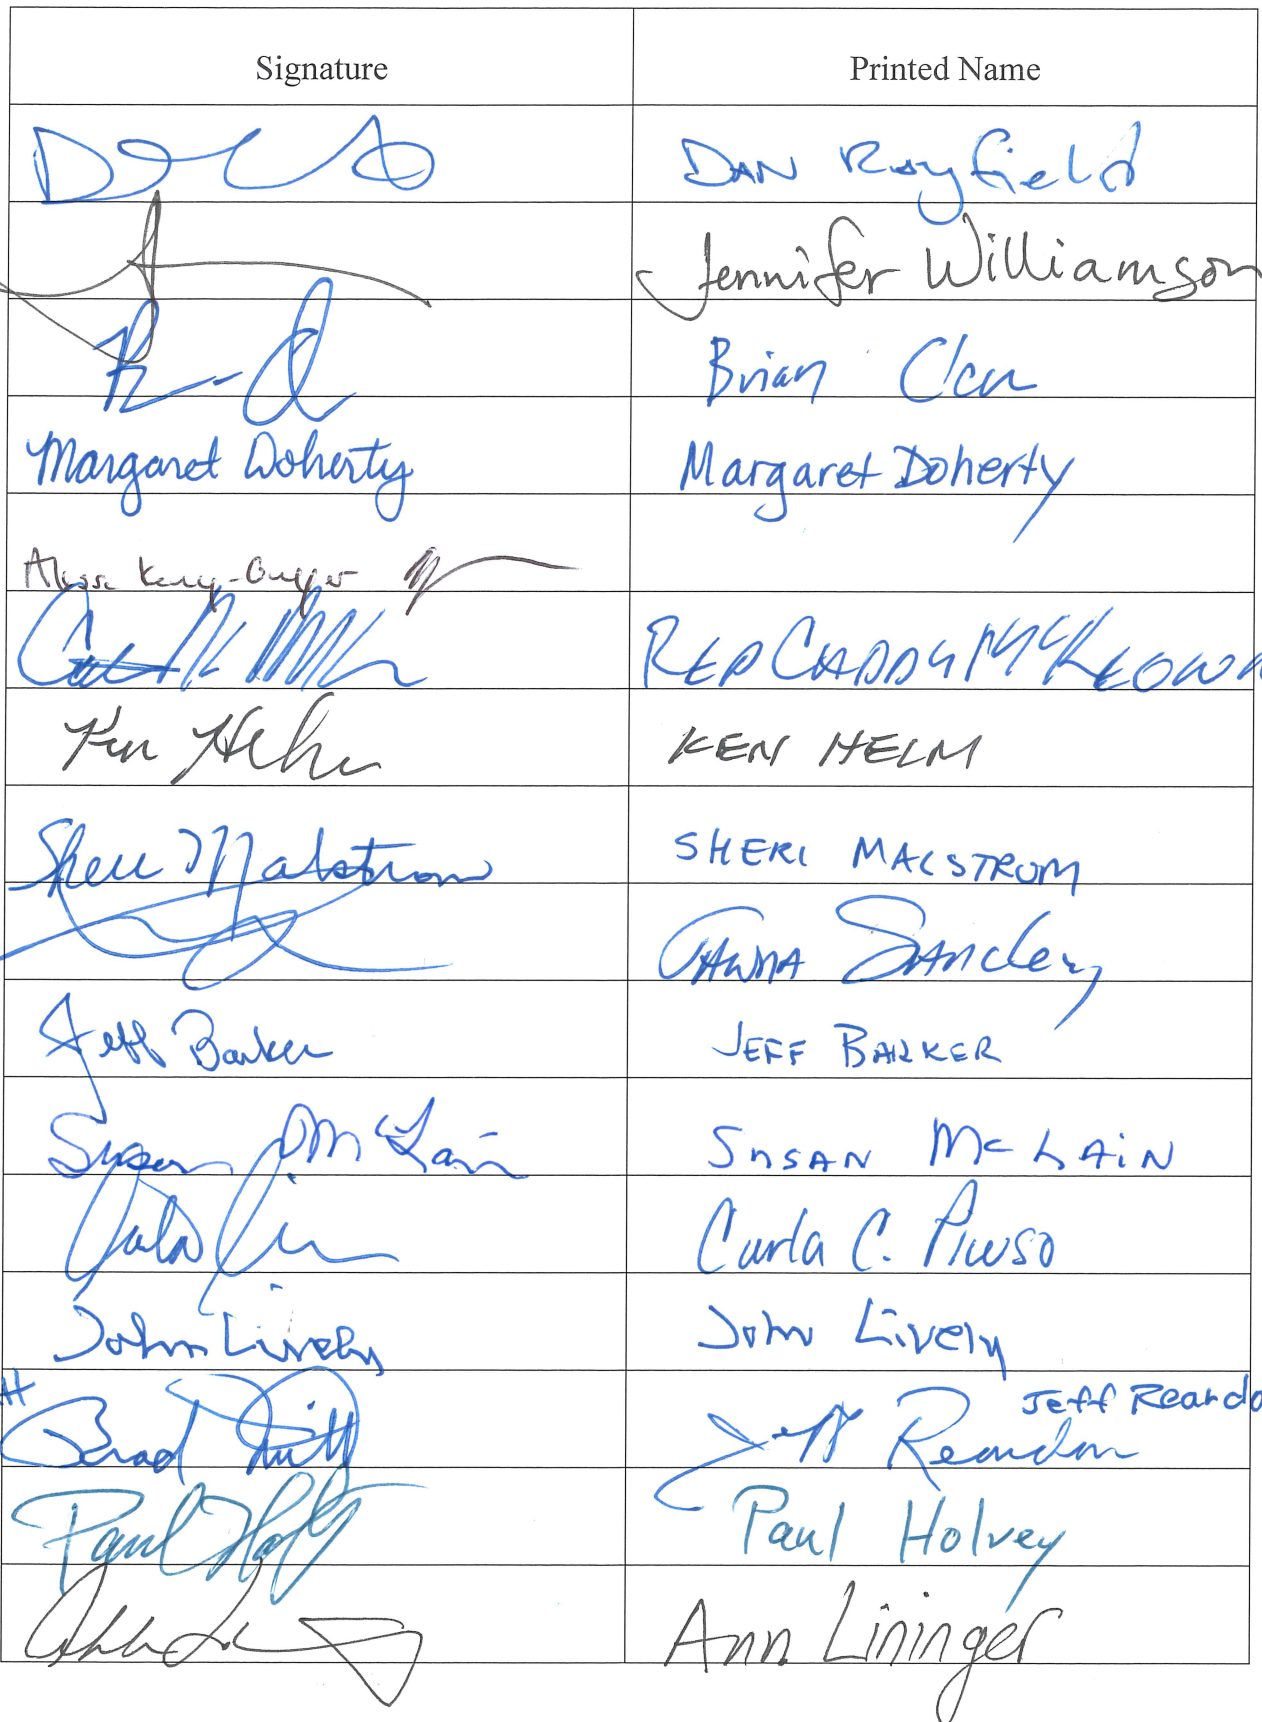 Signature Printed Name
DAN Rayfield
Jennifer Williamson
Brian Clem
Margaret Doherty Margaret Doherty
Alissa Keny-Guyer
REP CADDY MCKEOWN
Ken Helm KEN HELM
Sheri Malstrom SHERI MALSTROM
TAWNA SANCHEZ
Jeff Barker JEFF BARKER
Susan McLain SUSAN McLAiN
Carla C. Piluso
John Lively John Lively
Jeff Reardo
Brad Witt Jeff Reardon
Paul Holvey Paul Holvey
Ann Lininger